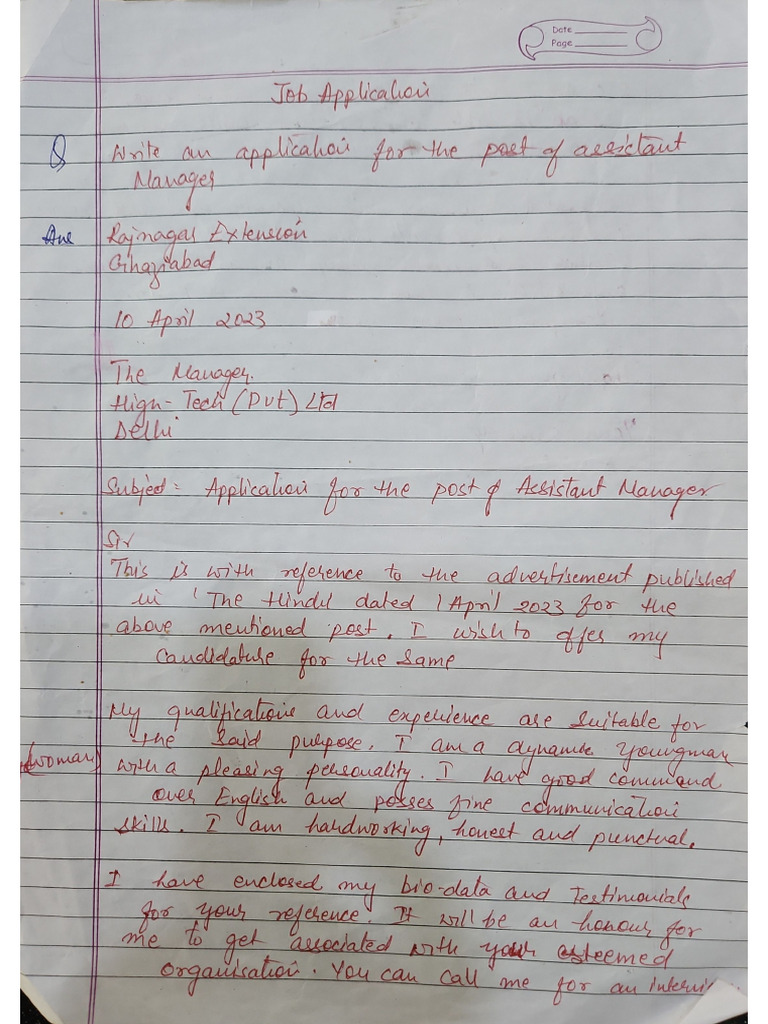 Date
Page
Job Application
Q Write an application for the post of assistant
Manager
Ans Rajnagar Extension
Ghaziabad
10 April 2023
The Manager.
High-Tech (Pvt) Ltd
Delhi
Subject = Application for the post of Assistant Manager
Sir
This is with reference to the advertisement published
in 'The Hindu dated 1 April 2023 for the
above mentioned post. I wish to offer my
Candidature for the same
My qualifications and experience are suitable for
the said purpose. I am a dynamic youngman
(woman) with a pleasing personality. I have good command
over English and posses fine communication
skills. I am hardworking, honest and punctual.
I have enclosed my bio-data and Testimonials
for your reference. It will be an honour for
me to get associated with your esteemed
organisation. You can call me for an